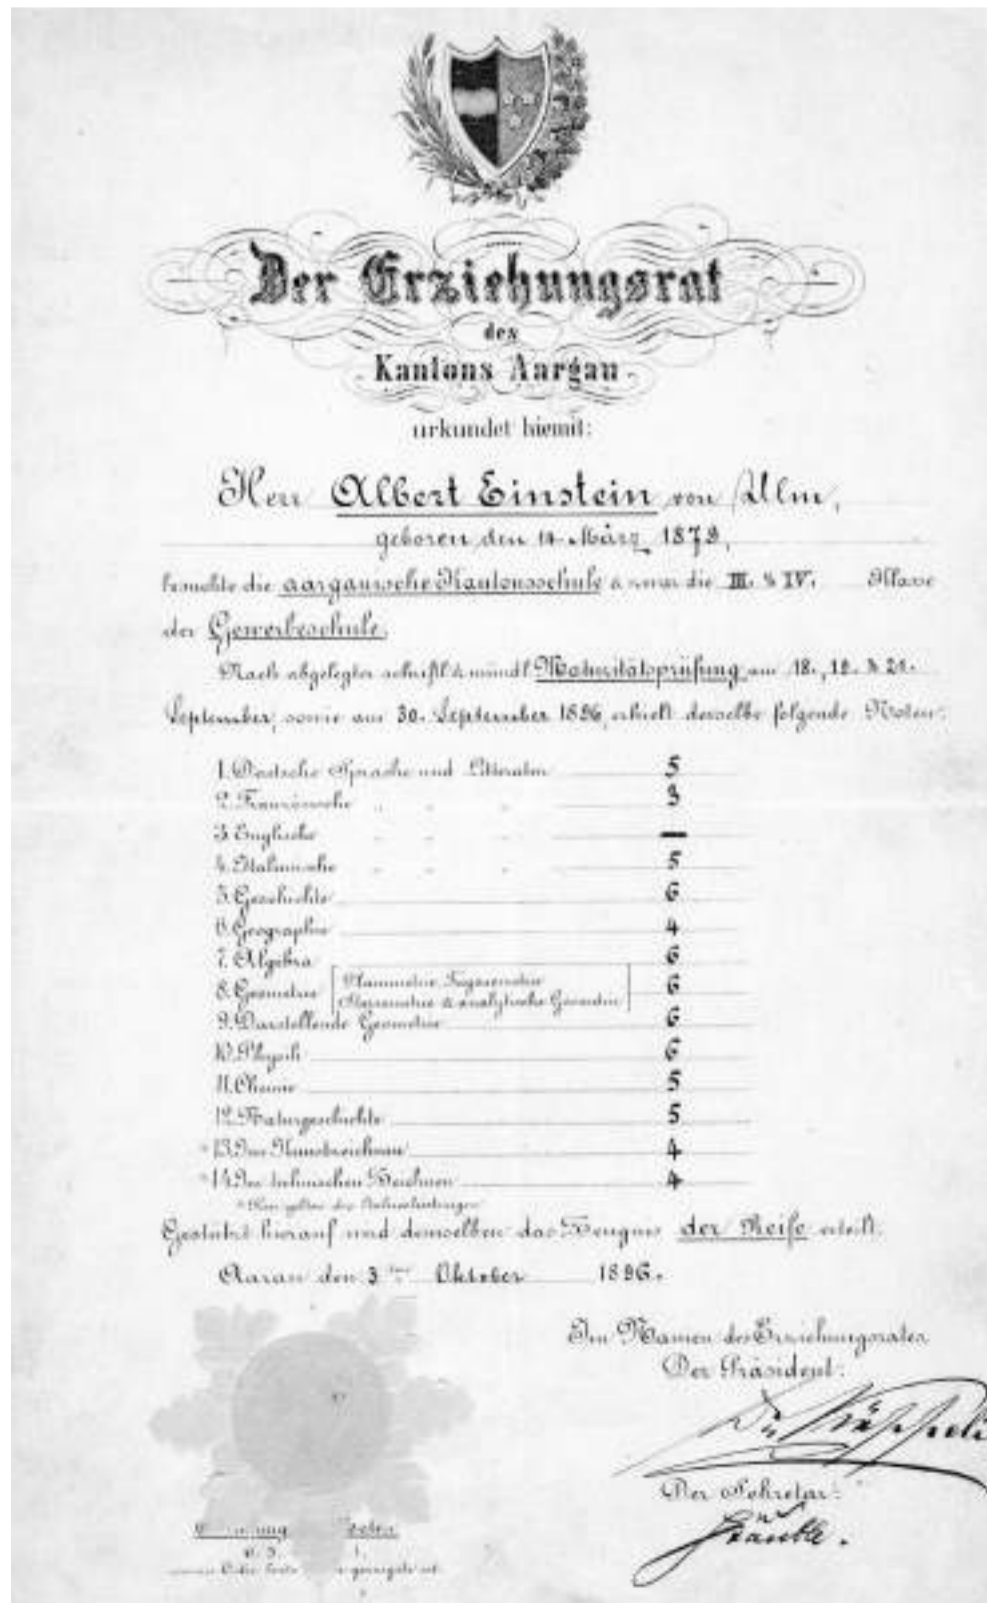 Der Erziehungsrat
des
Kantons Aargau
urkundet hiemit:
Herr Albert Einstein von Ulm,
geboren den 14. März 1879,
besuchte die aargauische Kantonsschule & zwar die III. & IV. Klasse
der Gewerbeschule.
Nach abgelegter schriftl. & mündl. Maturitätsprüfung am 18., 19. & 21.
September, sowie am 30. September 1896, erhielt derselbe folgende Noten:
1. Deutsche Sprache und Litteratur 5
2. Französische " " " 3
3. Englische " " " —
4. Italienische " " " 5
5. Geschichte 6
6. Geographie 4
7. Algebra 6
8. Geometrie [Planimetrie, Trigonometrie
Stereometrie & analytische Geometrie] 6
9. Darstellende Geometrie 6
10. Physik 6
11. Chemie 5
12. Naturgeschichte 5
* 13. Im Kunstzeichnen 4
* 14. Im technischen Zeichnen 4
* Hier gelten die Jahresleistungen.
Gestützt hierauf wird demselben das Zeugnis der Reife erteilt.
Aarau den 3ten Oktober 1896.
Im Namen des Erziehungsrates,
Der Präsident:
Der Sekretär:
Stäuble.